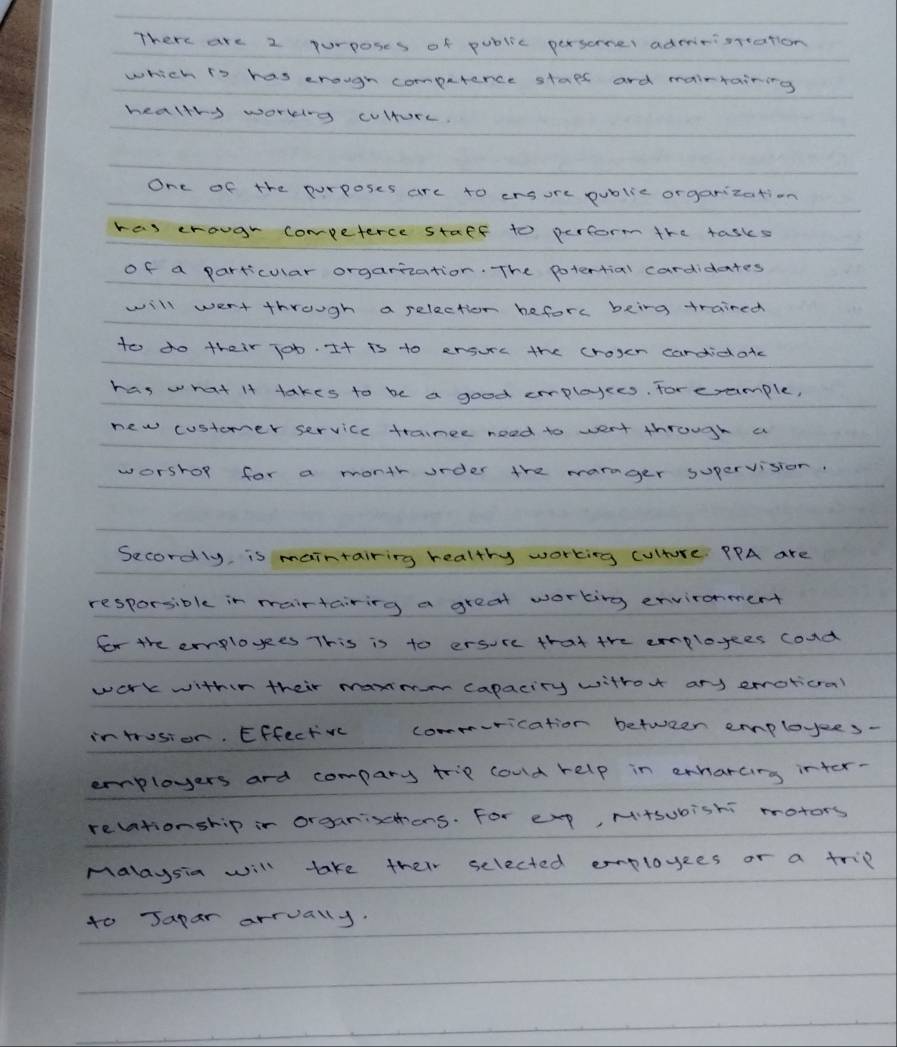 There are 2 purposes of public personnel administration
which is has enough competence staff and maintaining
healthy working culture.
One of the purposes are to ensure public organization
has enough competence staff to perform the tasks
of a particular organization. The potential candidates
will went through a selection before being trained
to do their job. It is to ensure the chosen candidate
has what it takes to be a good employees. For example,
new customer service trainee need to went through a
worshop for a month under the manager supervision.
Secondly, is maintaining healthy working culture. PPA are
responsible in maintaining a great working environment
for the employees This is to ensure that the employees could
work within their maximum capacity without any emotional
intrusion. Effective communication between employees-
employers and company trip could help in enhancing inter-
relationship in organisations. For exp, Mitsubishi motors
Malaysia will take their selected employees on a trip
to Japan annually.